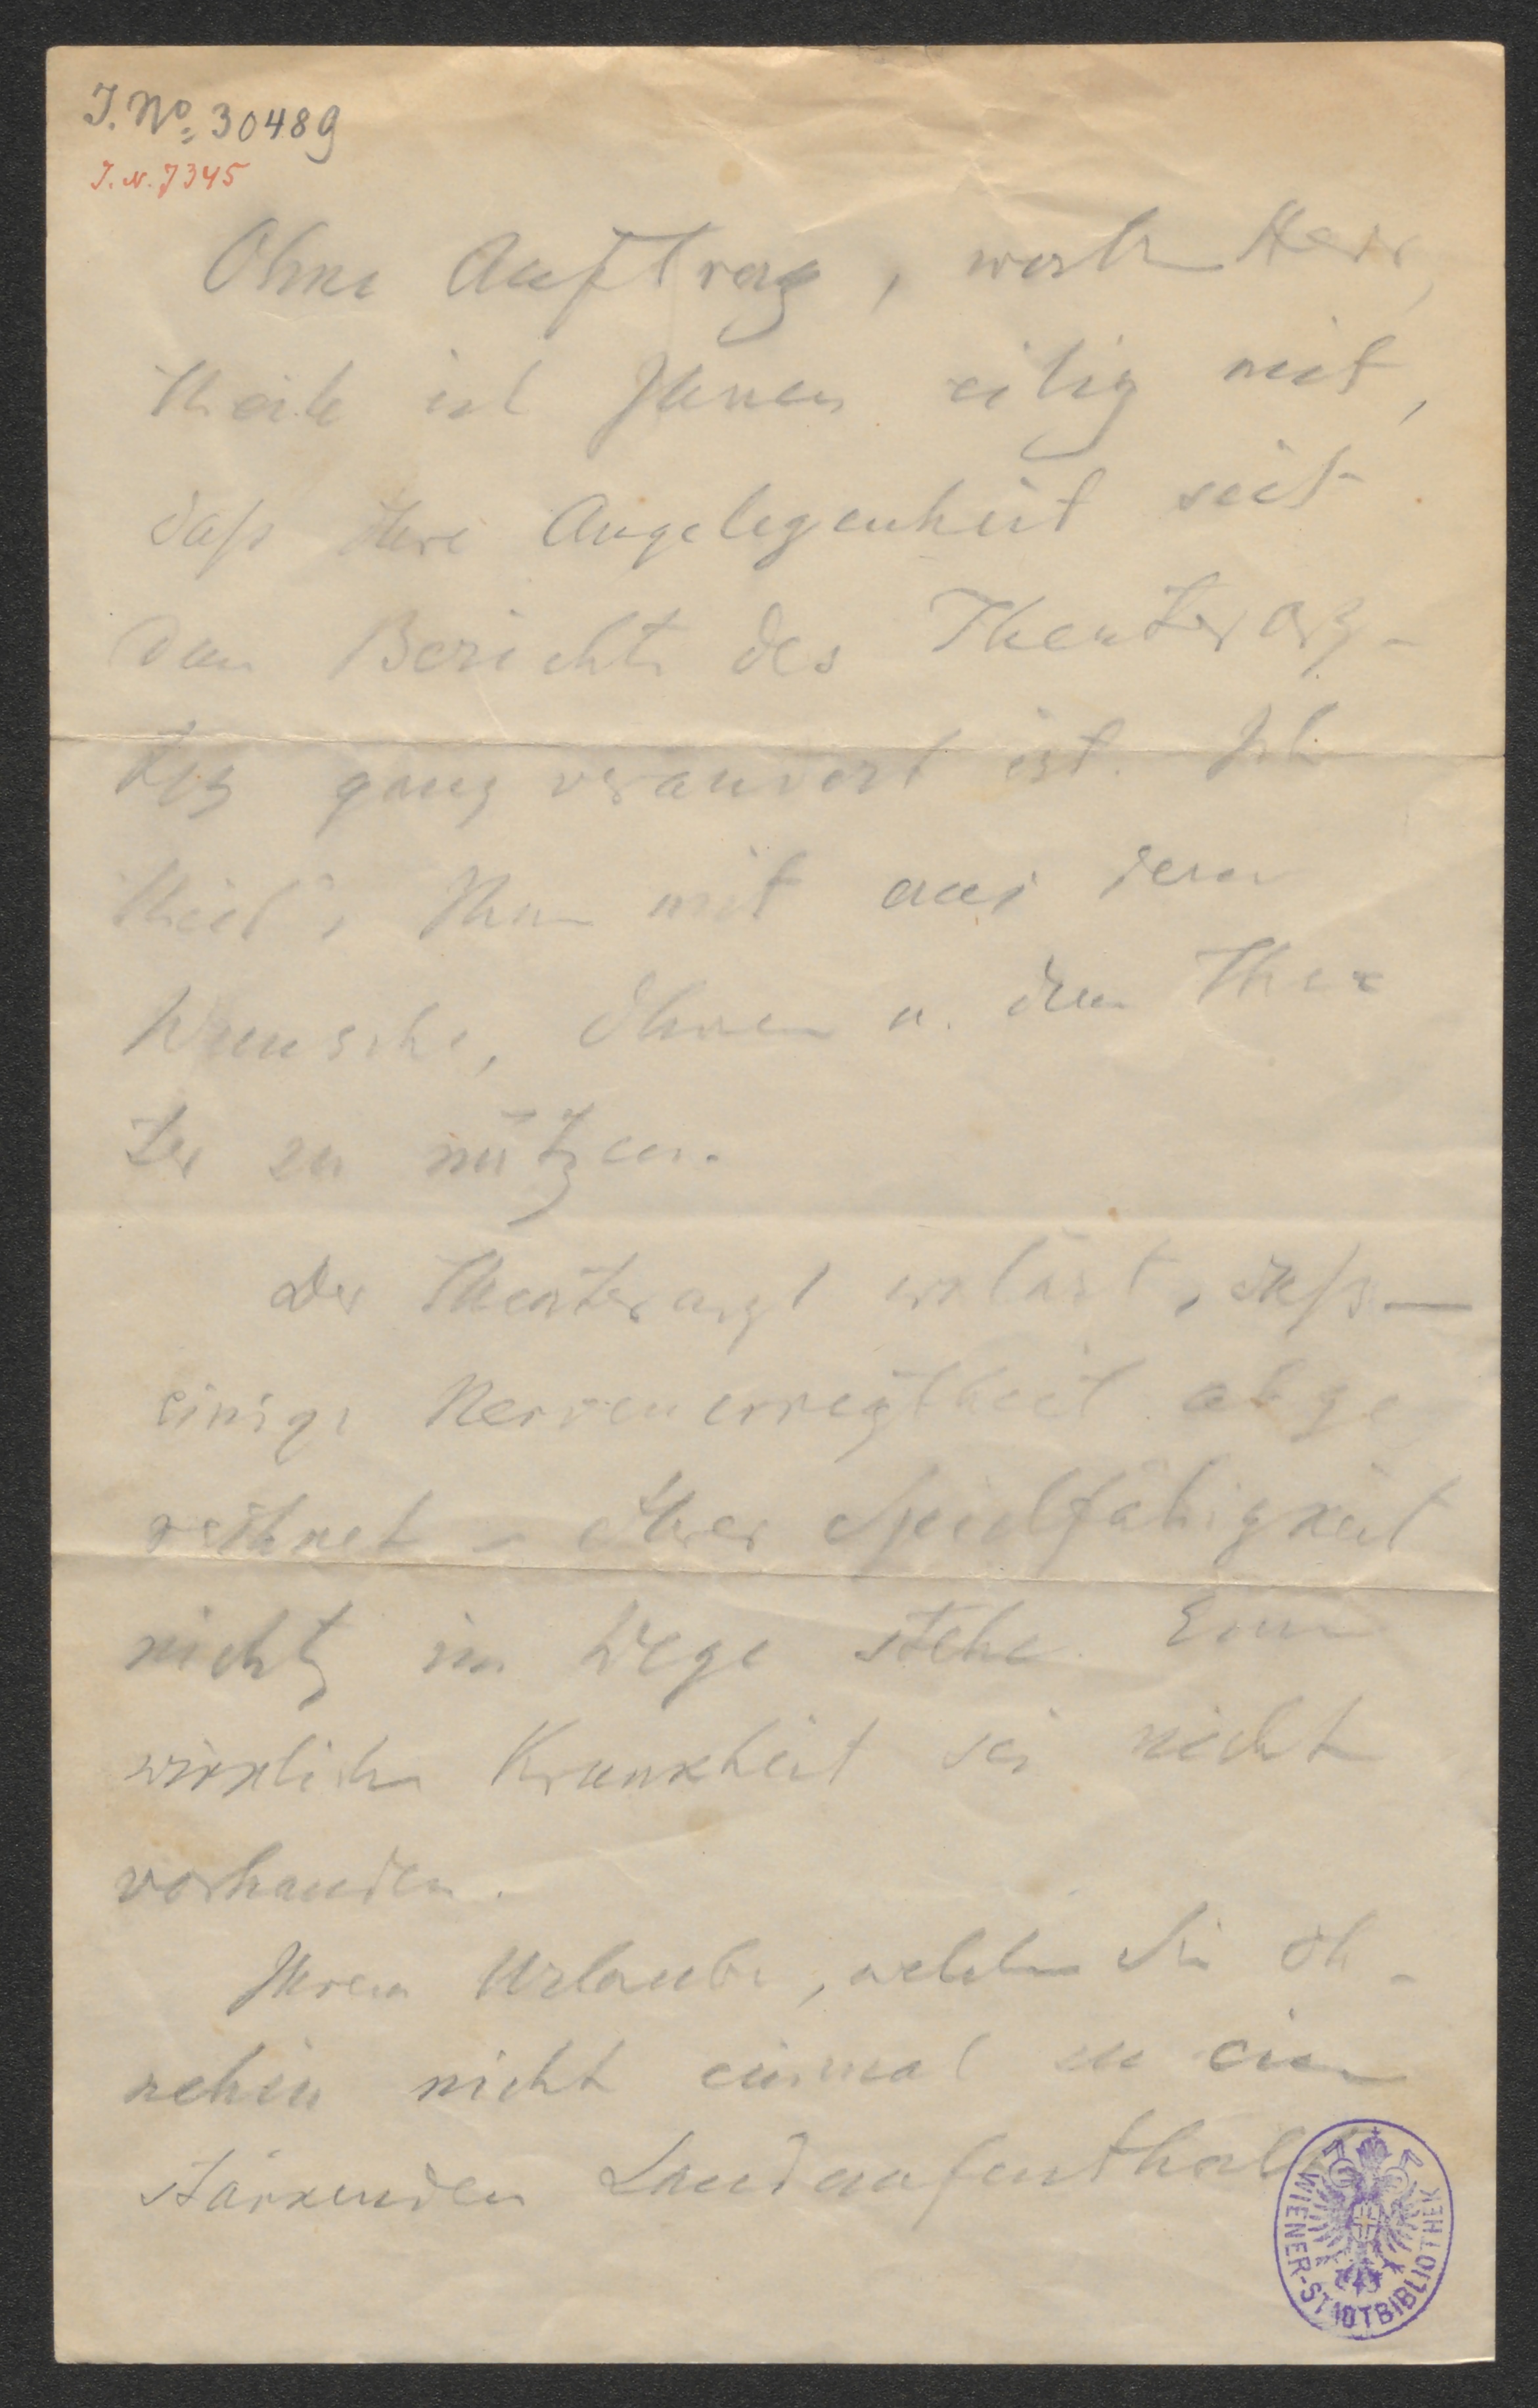 J. No. 30489
J. N. 7345
Ohne Auftrag, werther Herr,
theile ich Ihnen eilig mit,
daß Ihre Angelegenheit seit
dem Berichte des Theaterarz-
tes ganz verändert ist. Ich
theile Ihnen mit aus dem
Wunsche, Ihnen u. dem Thea
ter zu nützen.
Der Theaterarzt erklärt, daß —
einige Nervenerregtheit abge
rechnet – Ihrer Spielfähigkeit
nichts im Wege stehe. Eine
wirkliche Krankheit sei nicht
vorhanden.
Ihrem Urlaube, welchen Sie oh-
nehin nicht einmal zu einem
stärkenden Landaufenthalt
WIENER-STADTBIBLIOTHEK